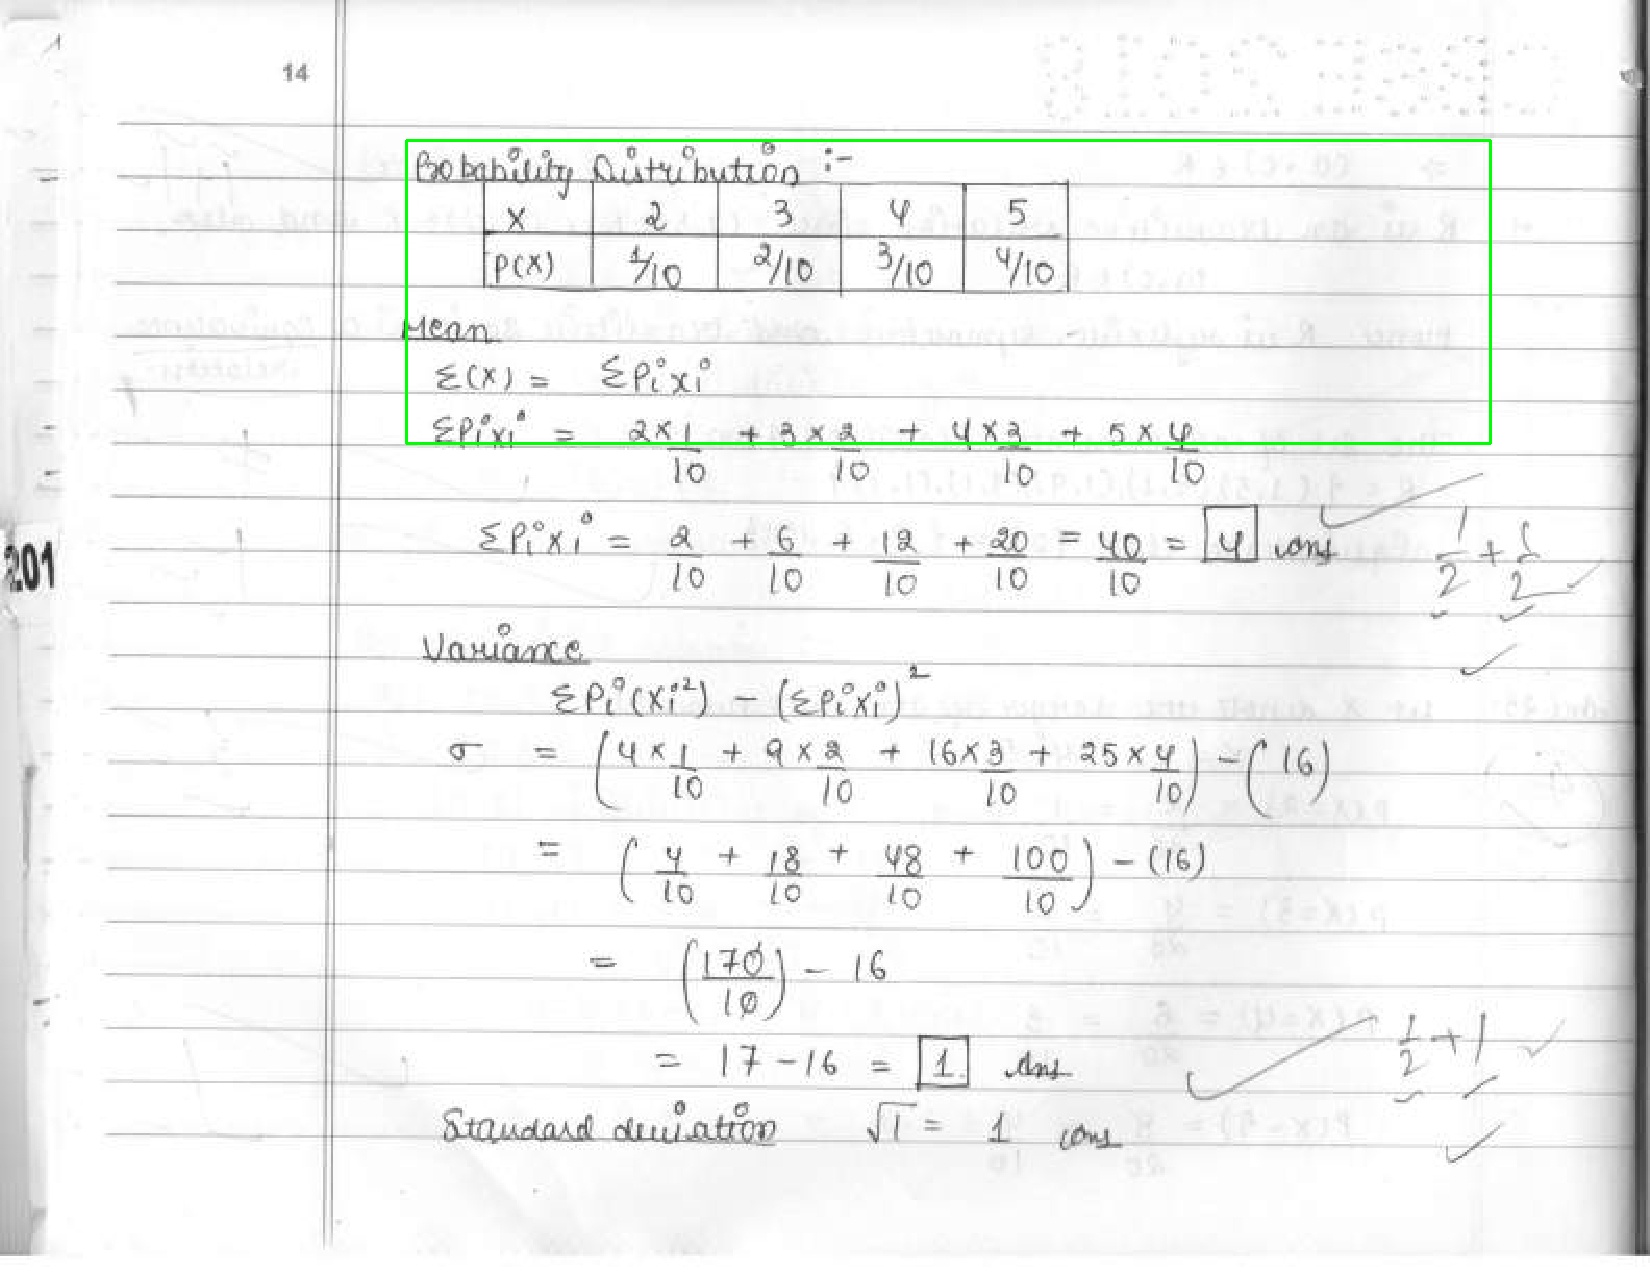 14
Probability Distribution :-
X 2 3 4 5
P(X) 1/10 2/10 3/10 4/10
Mean
Σ(X) = ΣPixi
ΣPixi = 2×1/10 + 3×2/10 + 4×3/10 + 5×4/10
ΣPixi = 2/10 + 6/10 + 12/10 + 20/10 = 40/10 = 4 ans
1/2 + 1/2
201
Variance
ΣPi(Xi²) - (ΣPiXi)²
σ = (4×1/10 + 9×2/10 + 16×3/10 + 25×4/10) - (16)
= (4/10 + 18/10 + 48/10 + 100/10) - (16)
= (170/10) - 16
= 17 - 16 = 1 Ans
1/2 + 1
Standard deviation √1 = 1 ans